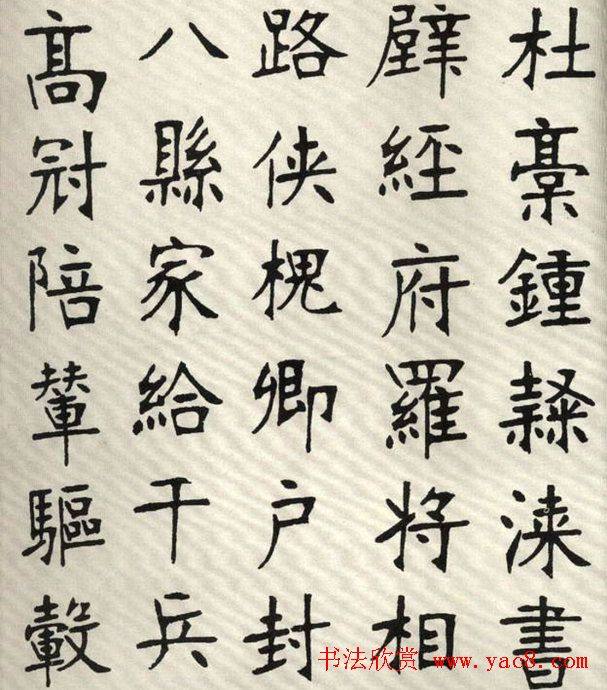 杜稾鍾隸漆書
壁經府羅将相
路侠槐卿户封
八縣家給千兵
高冠陪輦驅轂
书法欣赏 www.yac8.com